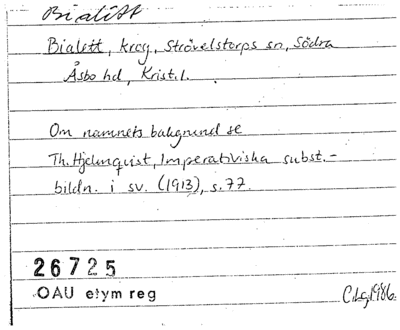 Bialitt
Bialitt, krog, Strövelstorps sn, Södra
Åsbo hd, Krist.l.
Om namnets bakgrund se
Th. Hjelmqvist, Imperativiska subst.-
bildn. i sv. (1913), s. 77.
26725
OAU etym reg
1986.